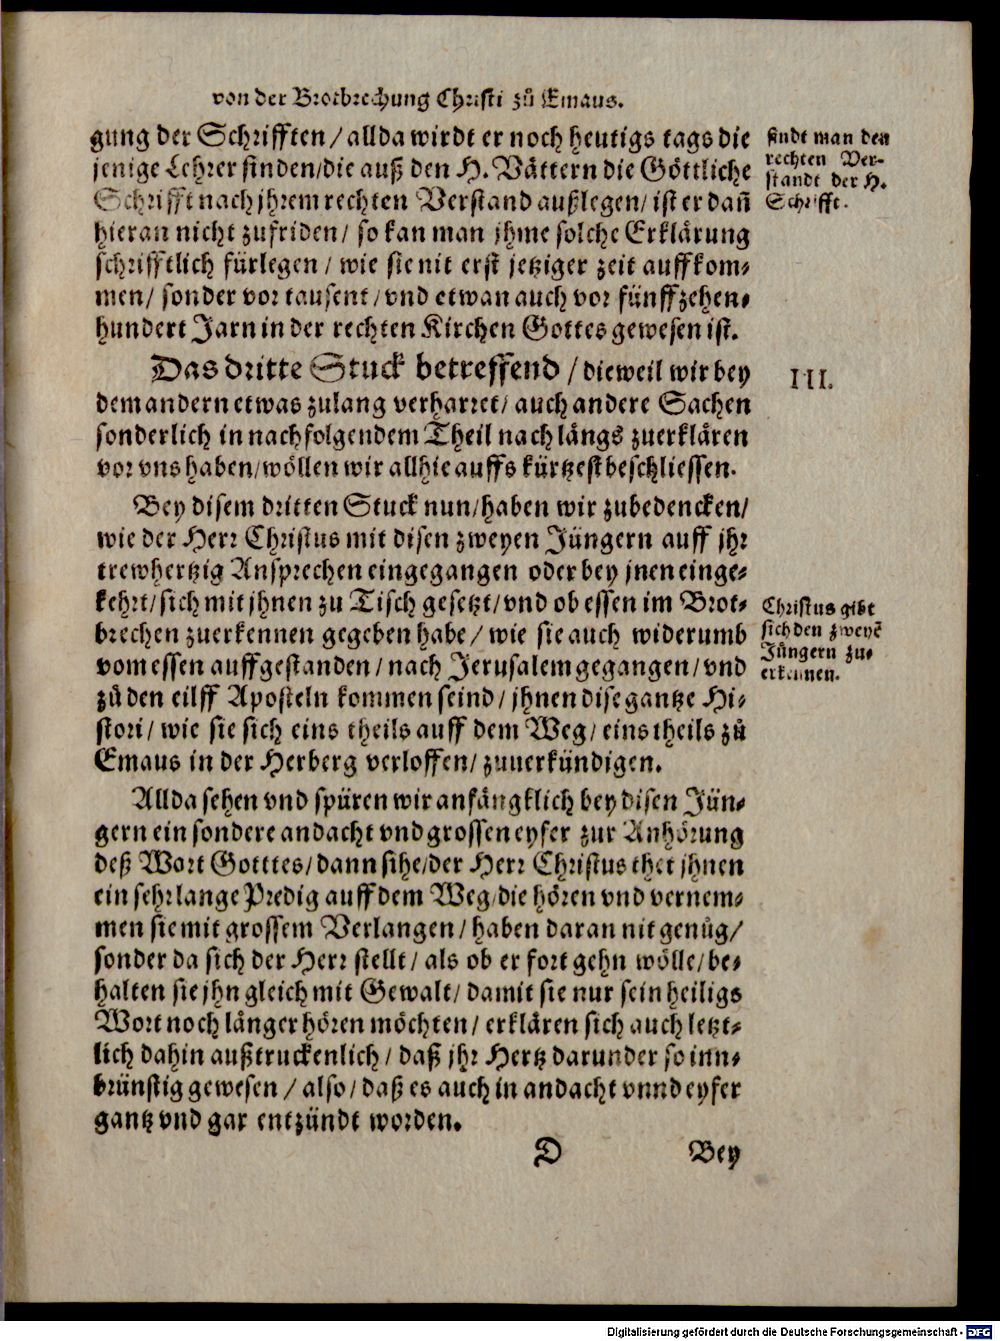 von der Brotbrechung Christi zů Emaus.
gung der Schrifften / allda wirdt er noch heutigs tags die
jenige Lehrer finden/die auß den H. Vättern die Göttliche
Schrifft nach jhrem rechten Verstand außlegen/ ist er dañ
hieran nicht zufriden/ so kan man jhme solche Erklärung
schrifftlich fürlegen / wie sie nit erst jetziger zeit auffkom-
men/ sonder vor tausent/ vnd etwan auch vor fünffzehen-
hundert Jarn in der rechten Kirchen Gottes gewesen ist.
findt man den
rechten Ver-
standt der H.
Schrifft.
Das dritte Stuck betreffend / dieweil wir bey
dem andern etwas zulang verharret/ auch andere Sachen
sonderlich in nachfolgendem Theil nach längs zuerklären
vor vns haben/wöllen wir allhie auffs kürtzest beschliessen.
III.
Bey disem dritten Stuck nun/haben wir zubedencken/
wie der Herr Christus mit disen zweyen Jüngern auff jhr
trewhertzig Ansprechen eingegangen oder bey jnen einge-
kehrt/sich mit jhnen zu Tisch gesetzt/vnd ob essen im Brot-
brechen zuerkennen gegeben habe/ wie sie auch widerumb
vom essen auffgestanden/ nach Jerusalem gegangen/ vnd
zů den eilff Aposteln kommen seind/ jhnen dise gantze Hi-
stori/ wie sie sich eins theils auff dem Weg/ eins theils zů
Emaus in der Herberg verloffen/ zuuerkündigen.
Christus gibt
sich den zweyē
Jüngern zu-
erkennen.
Allda sehen vnd spüren wir anfängklich bey disen Jün-
gern ein sondere andacht vnd grossen eyfer zur Anhörung
deß Wort Gotttes/ dann sihe/der Herr Christus thet jhnen
ein sehr lange Predig auff dem Weg/die hören vnd vernem-
men sie mit grossem Verlangen/ haben daran nit genůg/
sonder da sich der Herr stellt/ als ob er fort gehn wölle/ be-
halten sie jhn gleich mit Gewalt/ damit sie nur sein heiligs
Wort noch länger hören möchten/ erklären sich auch letzt-
lich dahin außtruckenlich/ daß jhr Hertz darunder so inn-
brünstig gewesen / also/ daß es auch in andacht vnnd eyfer
gantz vnd gar entzündt worden.
D Bey
Digitalisierung gefördert durch die Deutsche Forschungsgemeinschaft - DFG